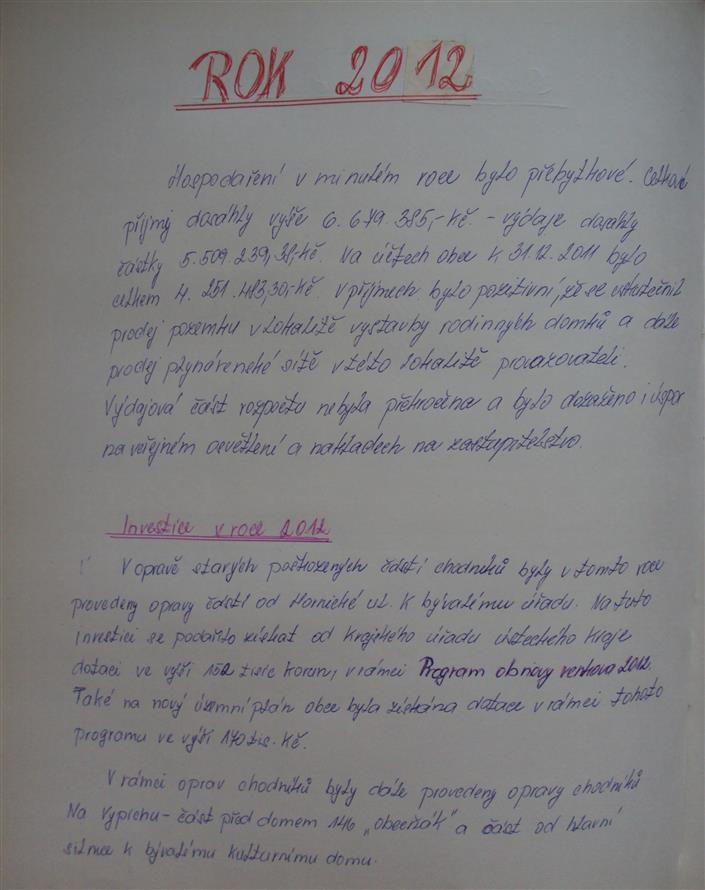 ROK 2012
Hospodaření v minulém roce bylo přebytkové. Celkové
příjmy dosáhly výše 6.679.385,-Kč. - výdaje dosáhly
částky 5.509.239,38,-Kč. Na účtech obce k 31.12.2011 bylo
celkem 4.251.483,30,-Kč. V příjmech bylo pozitivní, že se uskutečnil
prodej pozemků v lokalitě výstavby rodinných domků a dále
prodej plynárenské sítě v této lokalitě provozovateli.
Výdajová část rozpočtu nebyla překročena a bylo dosaženo i úspor
na veřejném osvětlení a nákladech na zastupitelstvo.
Investice v roce 2012
V opravě starých poškozených částí chodníků byly v tomto roce
provedeny opravy částí od Hornické ul. k bývalému úřadu. Na tuto
investici se podařilo získat od Krajského úřadu ústeckého kraje
dotaci ve výši 152 tisíc korun, v rámci Program obnovy venkova 2012.
Také na nový územní plán obce byla získána dotace v rámci tohoto
programu ve výši 170 tis. Kč.
V rámci oprav chodníků byly dále provedeny opravy chodníků
Na Vyprchu - část před domem 146 „obecňák" a část od hlavní
silnice k bývalému kulturnímu domu.